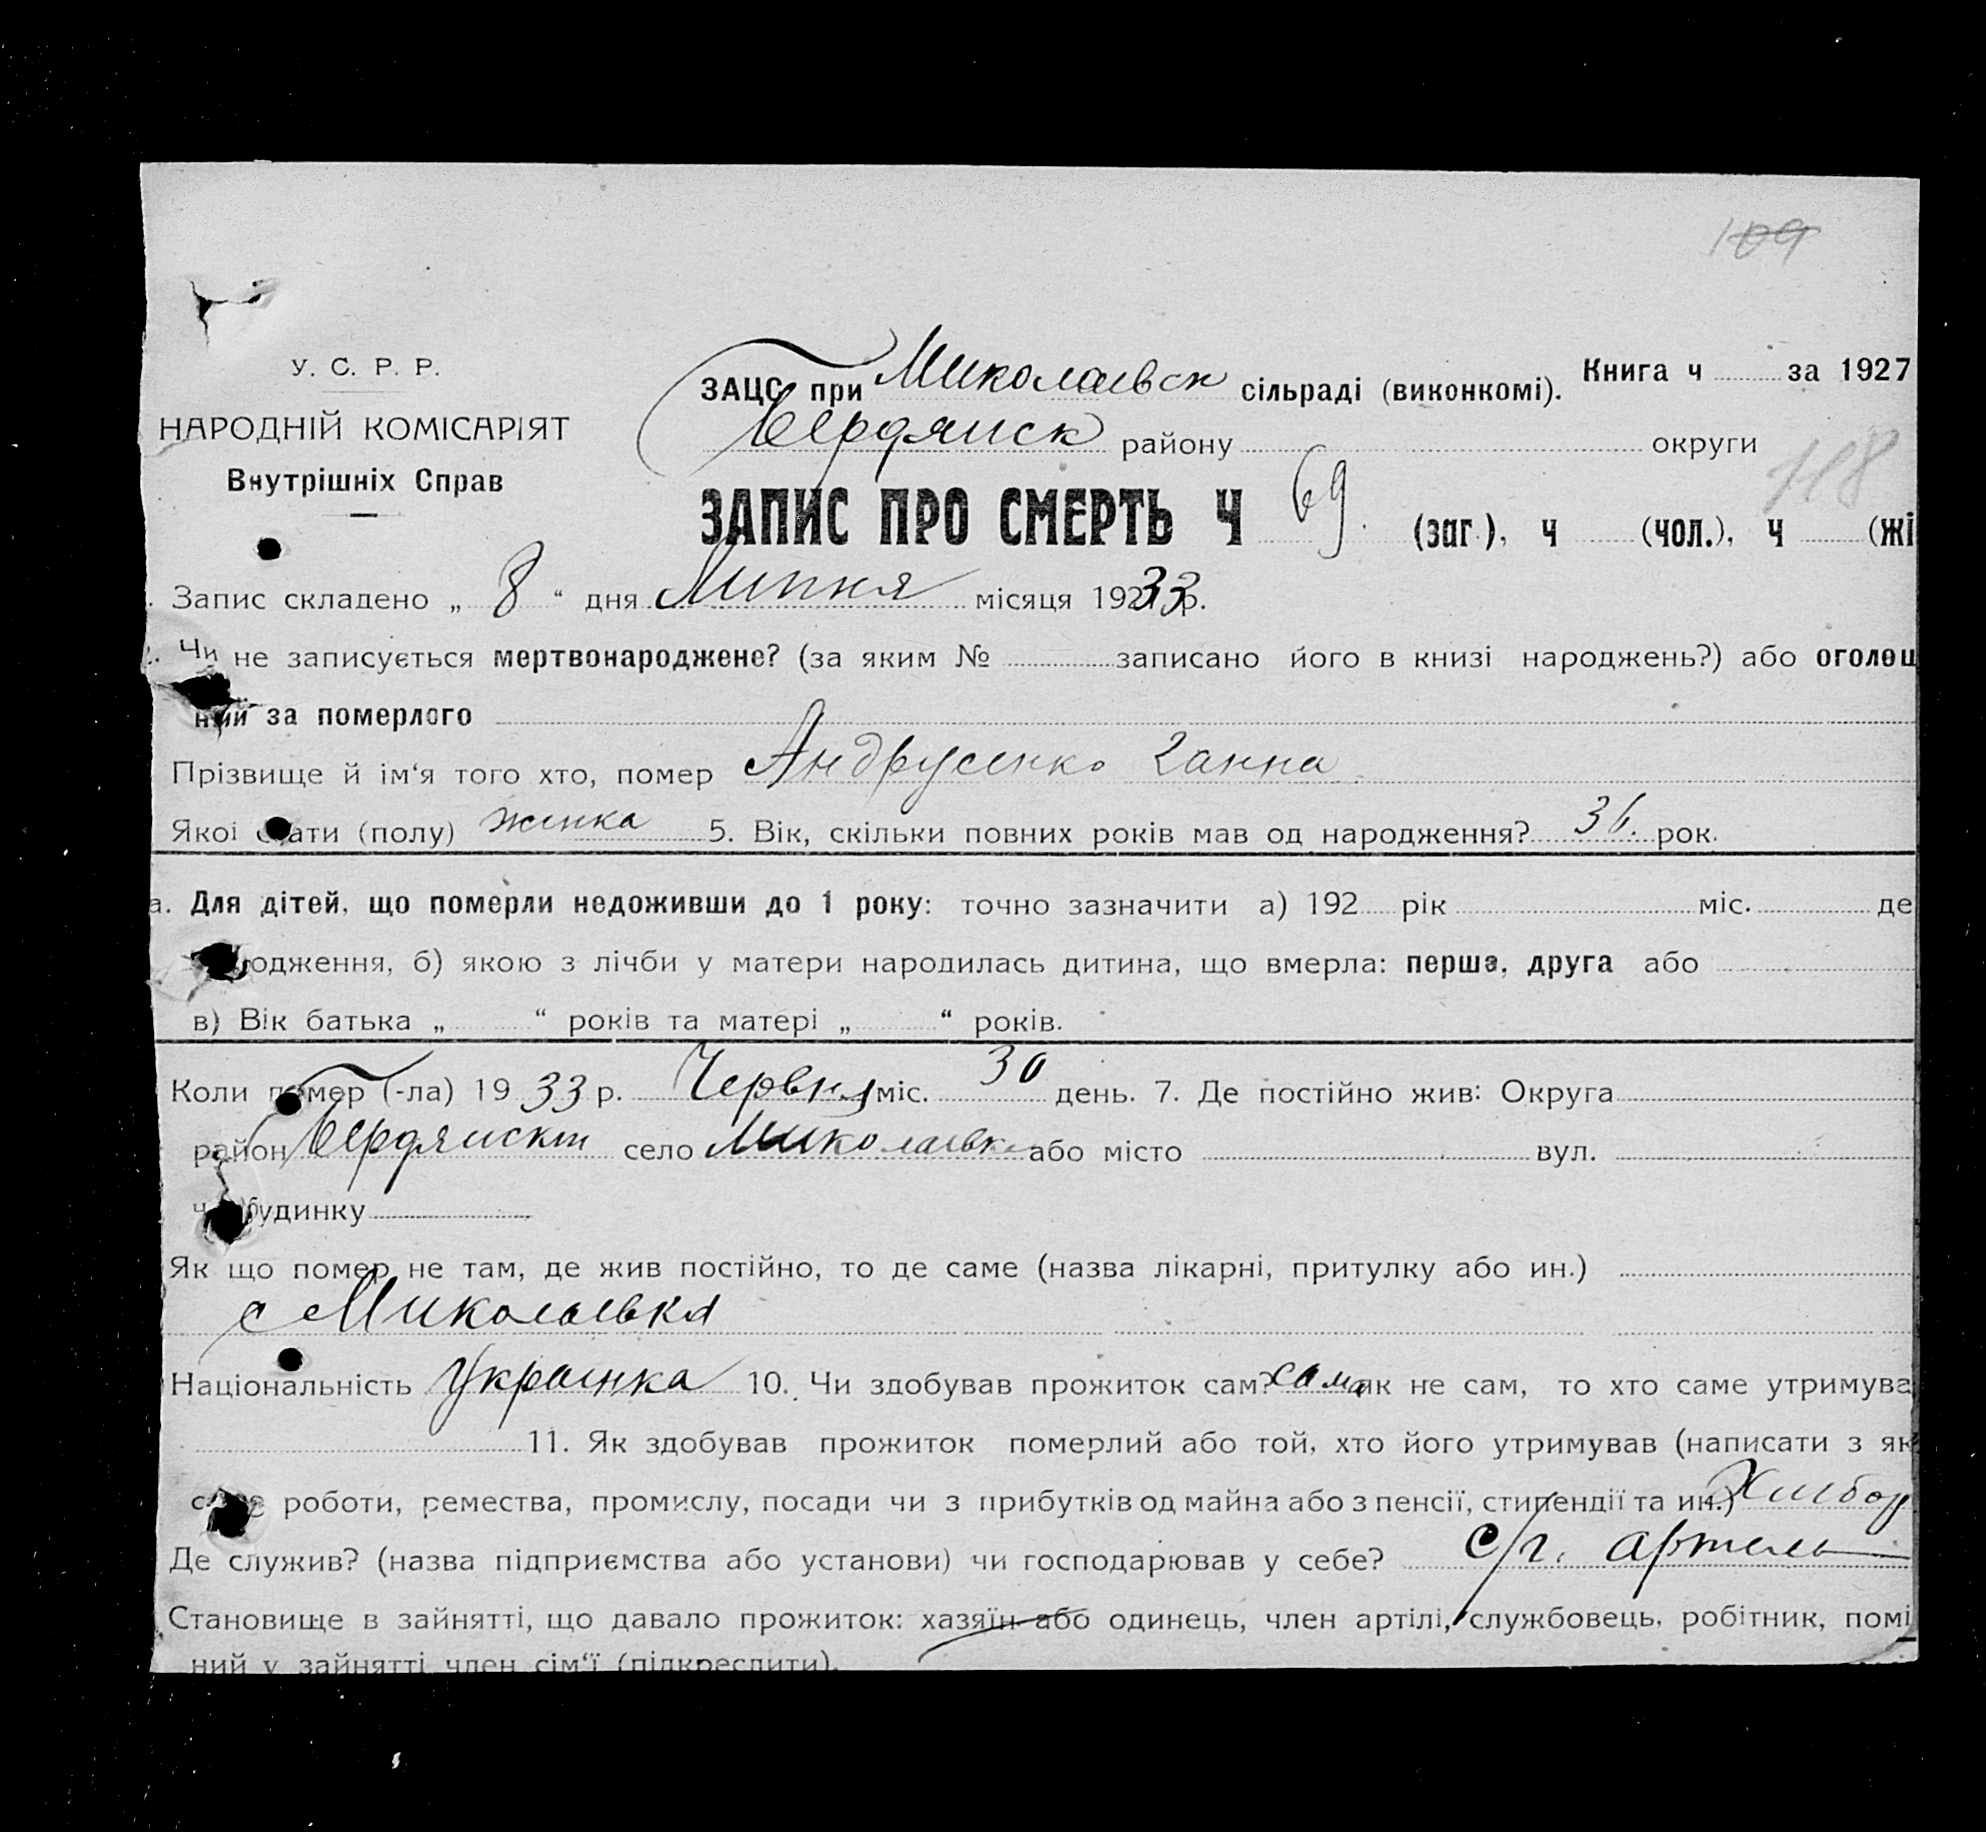 109
У. С. Р. Р.
НАРОДНІЙ КОМІСАРІЯТ
Внутрішніх Справ
ЗАЦС при Миколаевск сільраді (виконкомі). Книга ч за 1927
Бердянск району округи
118
ЗАПИС ПРО СМЕРТЬ Ч 69. (заг.), ч (чол.), ч (жі
Запис складено „ 8 “ дня Липня місяця 192 33 р.
Чи не записується мертвонароджене? (за яким № записано його в книзі народжень?) або оголош
ний за померлого
Прізвище й ім‘я того хто, помер Андрусенко Ганна
Якої стати (полу) жинка 5. Вік, скільки повних років мав од народження? 36. рок.
а. Для дітей, що померли недоживши до 1 року: точно зазначити а) 192 рік міс. де
одження, б) якою з лічби у матери народилась дитина, що вмерла: перша, друга або
в) Вік батька „ “ років та матері „ “ років.
Коли помер (-ла) 19 33 р. Червня міс. 30 день. 7. Де постійно жив: Округа
район Бердянскт село Миколаевка або місто вул.
ч. будинку
Як що помер не там, де жив постійно, то де саме (назва лікарні, притулку або ин.)
с Миколаевка
Національність Украинка 10. Чи здобував прожиток сам? сама як не сам, то хто саме утримува
11. Як здобував прожиток померлий або той, хто його утримував (написати з як
роботи, ремества, промислу, посади чи з прибутків од майна або з пенсії, стипендії та ин.) Хлибор
Де служив? (назва підприємства або установи) чи господарював у себе? с/г. артель
Становище в зайнятті, що давало прожиток: хазяїн або одинець, член артілі, службовець, робітник, помі
ний у зайнятті член сім‘ї (підкреслити).